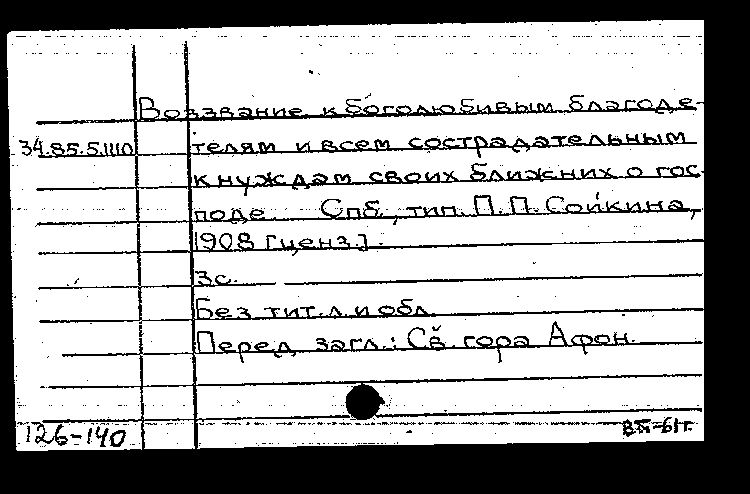 Воззвание к боголюбивым благоде-
34.85.5.1110 телям и всем сострадательным
к нуждам своих ближних о гос-
поде. Спб., тип. П.П. Сойкина,
1908 [ценз.].
3с.
Без тит. л. и обл.
Перед загл.: Св. гора Афон.
126-140